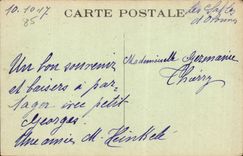 10.10.17
85
CARTE POSTALE
Les Sables
d'Olonne
Un bon souvenir
et baisers à par-
tager avec petit
Georges.
Une amie M.
Mademoiselle Germaine
Thierry